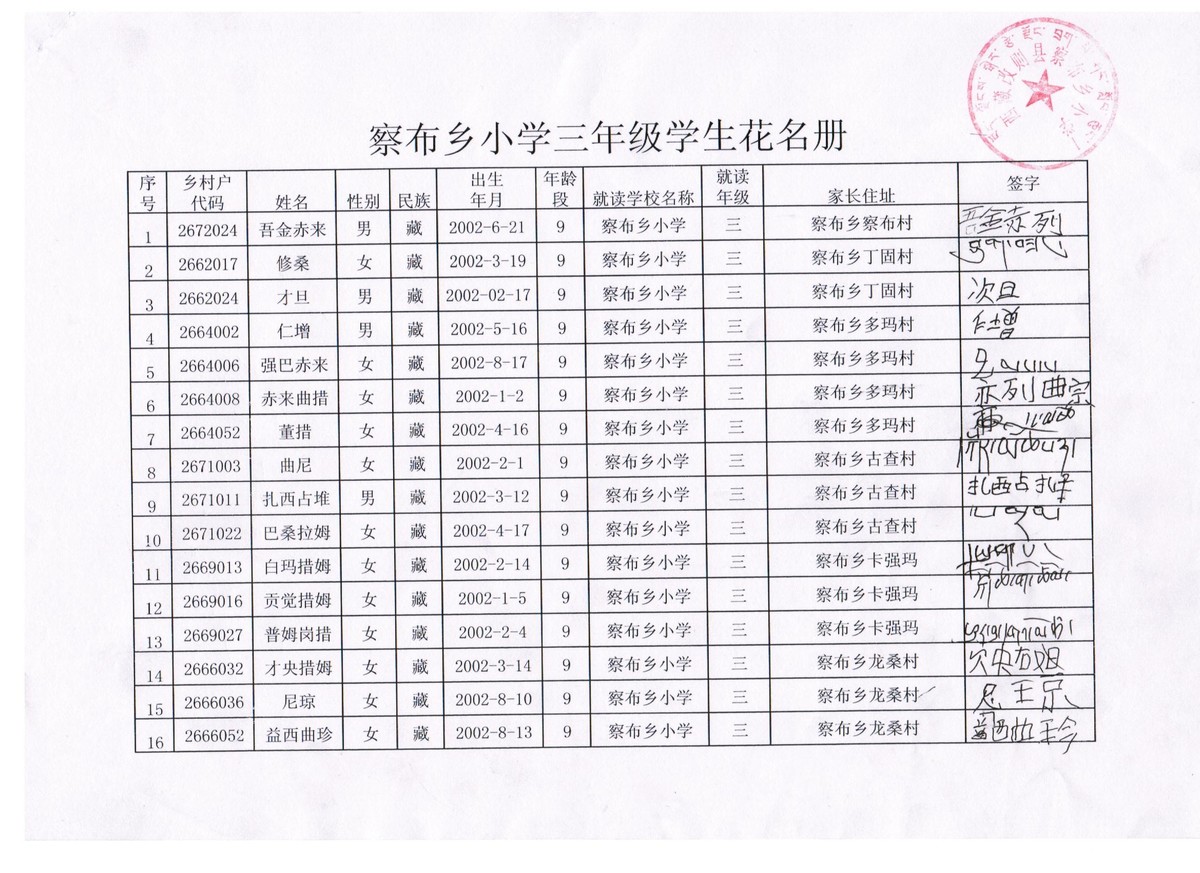 西藏改则县察布乡小学
察布乡小学三年级学生花名册
序号 乡村户代码 姓名 性别 民族 出生年月 年龄段 就读学校名称 就读年级 家长住址 签字
1 2672024 吾金赤来 男 藏 2002-6-21 9 察布乡小学 三 察布乡察布村 吾金赤列
2 2662017 修桑 女 藏 2002-3-19 9 察布乡小学 三 察布乡丁固村
3 2662024 才旦 男 藏 2002-02-17 9 察布乡小学 三 察布乡丁固村 次旦
4 2664002 仁增 男 藏 2002-5-16 9 察布乡小学 三 察布乡多玛村 仁增
5 2664006 强巴赤来 女 藏 2002-8-17 9 察布乡小学 三 察布乡多玛村
6 2664008 赤来曲措 女 藏 2002-1-2 9 察布乡小学 三 察布乡多玛村 赤列曲宗
7 2664052 董措 女 藏 2002-4-16 9 察布乡小学 三 察布乡多玛村
8 2671003 曲尼 女 藏 2002-2-1 9 察布乡小学 三 察布乡古查村
9 2671011 扎西占堆 男 藏 2002-3-12 9 察布乡小学 三 察布乡古查村 扎西占
10 2671022 巴桑拉姆 女 藏 2002-4-17 9 察布乡小学 三 察布乡古查村
11 2669013 白玛措姆 女 藏 2002-2-14 9 察布乡小学 三 察布乡卡强玛
12 2669016 贡觉措姆 女 藏 2002-1-5 9 察布乡小学 三 察布乡卡强玛
13 2669027 普姆岗措 女 藏 2002-2-4 9 察布乡小学 三 察布乡卡强玛
14 2666032 才央措姆 女 藏 2002-3-14 9 察布乡小学 三 察布乡龙桑村
15 2666036 尼琼 女 藏 2002-8-10 9 察布乡小学 三 察布乡龙桑村
16 2666052 益西曲珍 女 藏 2002-8-13 9 察布乡小学 三 察布乡龙桑村